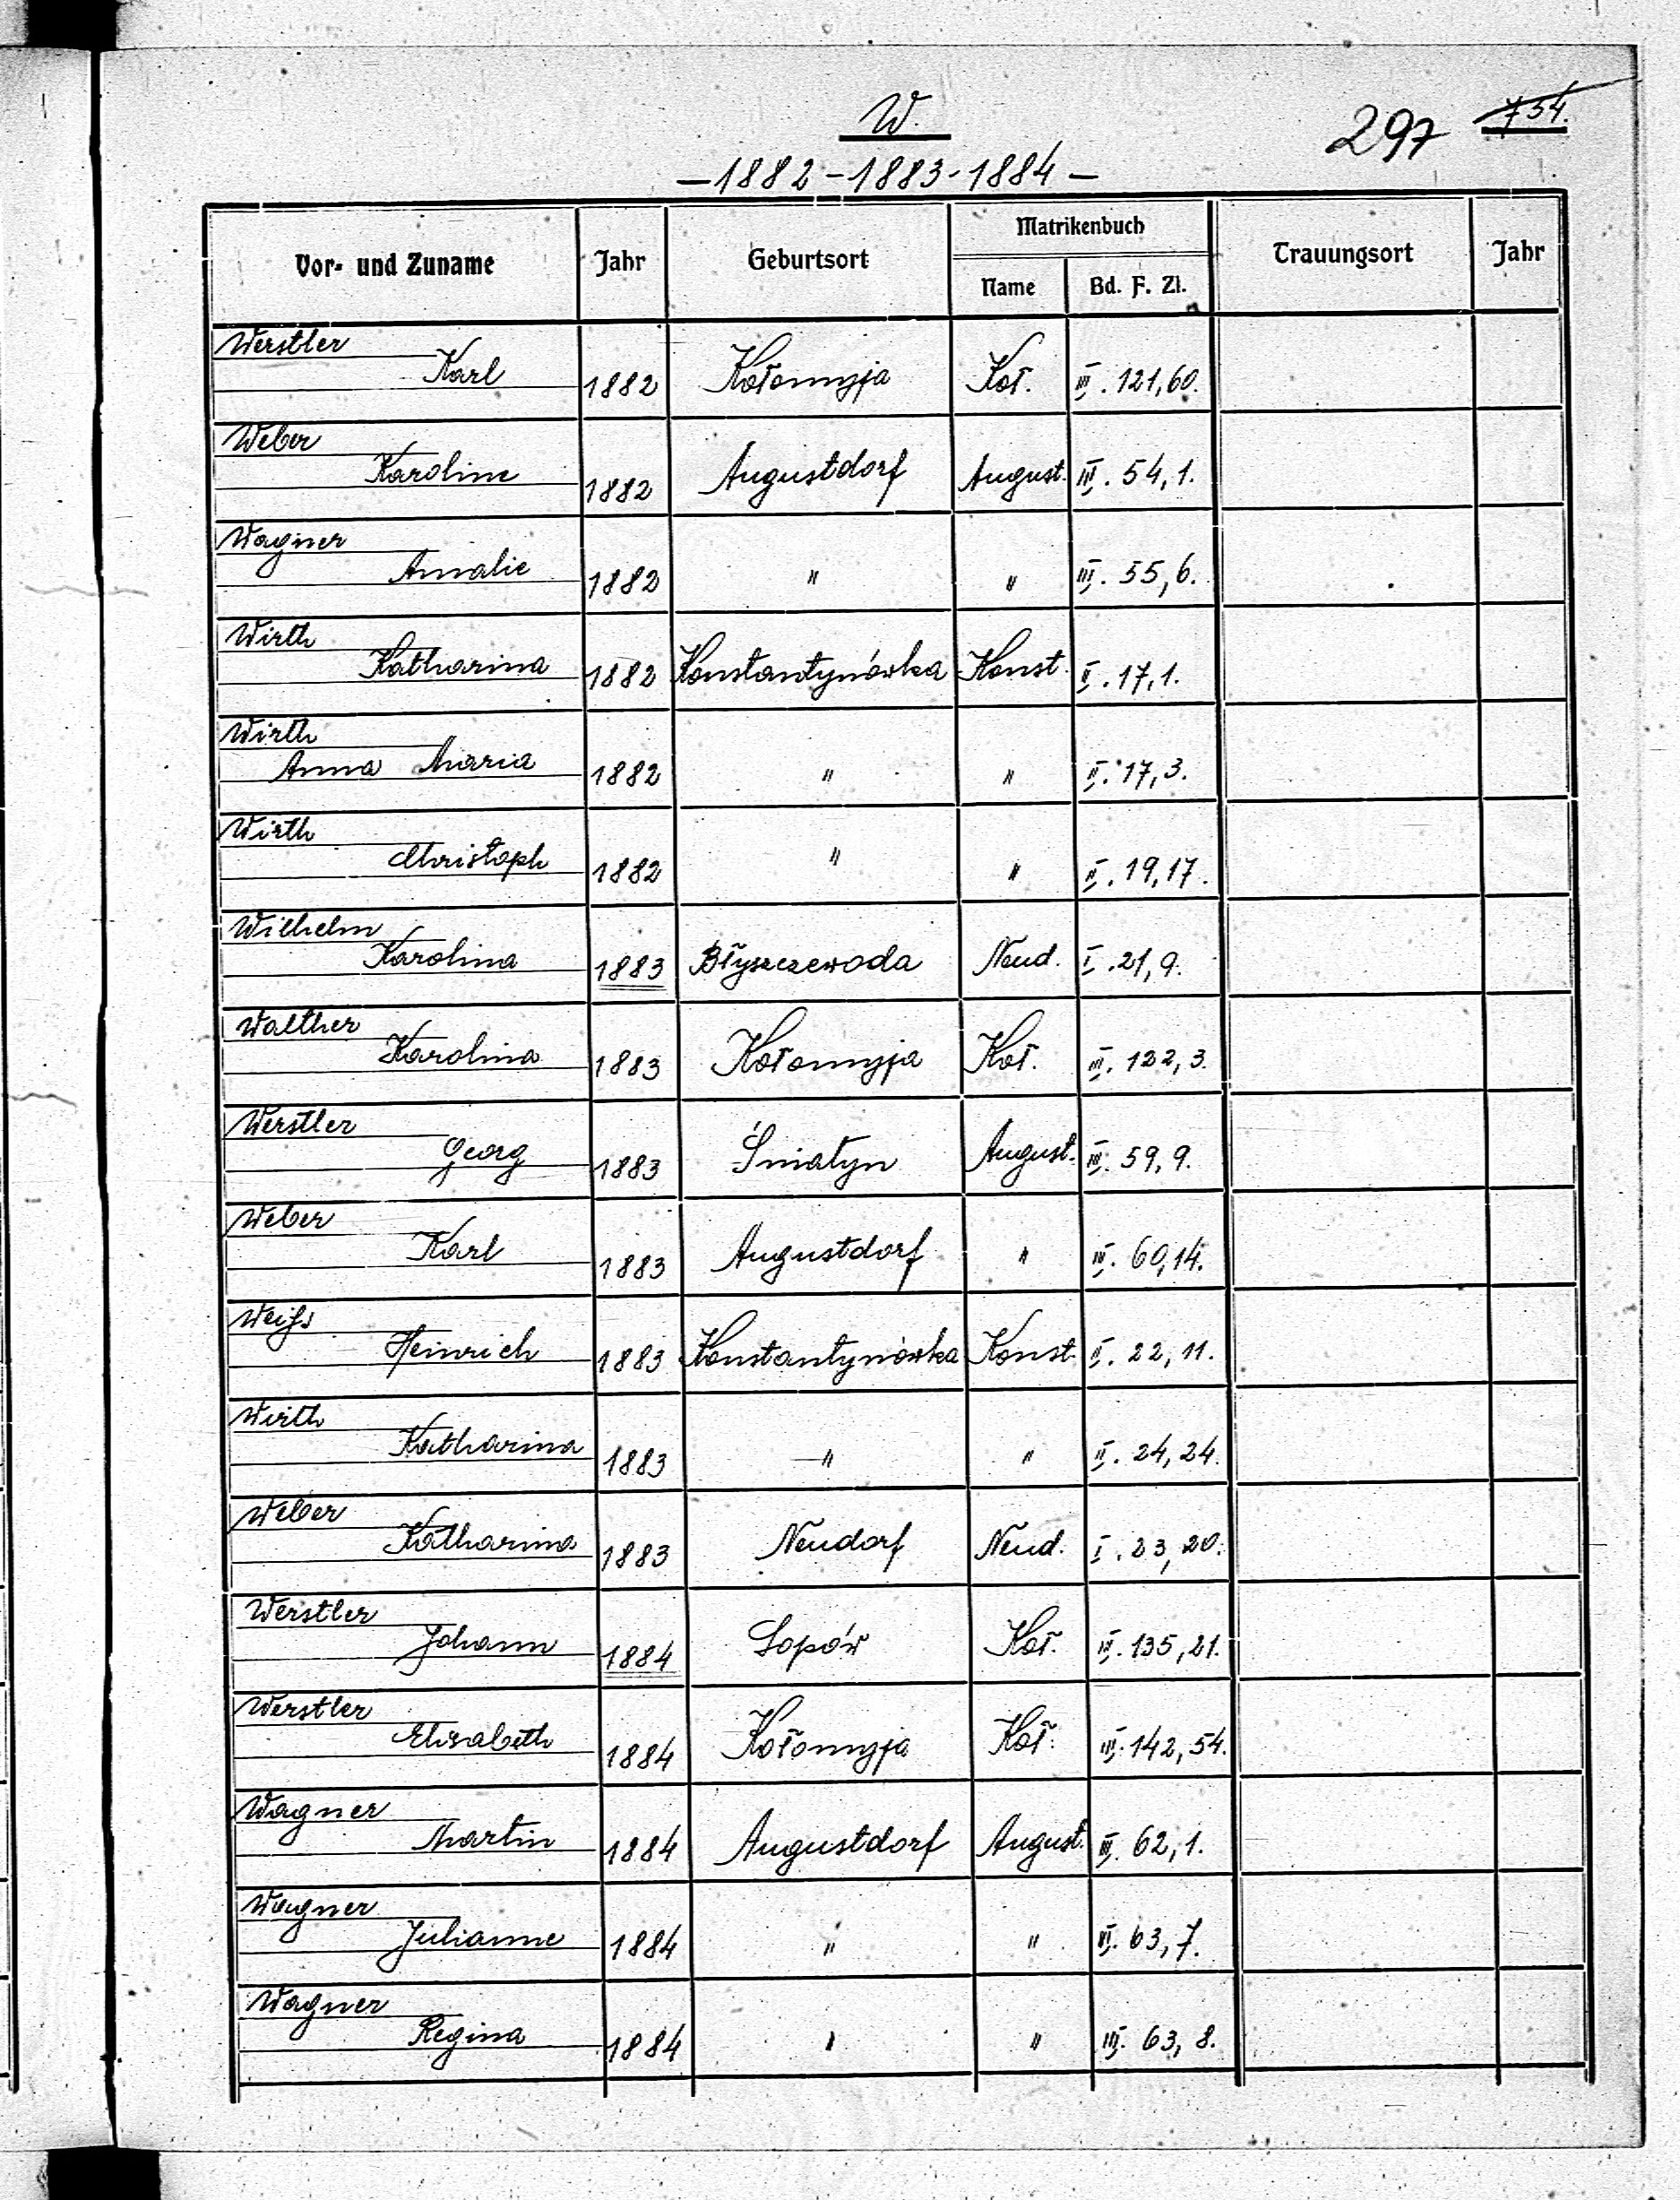 W.
297 734.
—1882–1883-1884—
Vor- und Zuname Jahr Geburtsort Matrikenbuch Trauungsort Jahr
Name Bd. F. Zl.
Werstler
Karl 1882 Kołomyja Koł. III. 121,60.
Weber
Karoline 1882 Augustdorf August. III. 54,1.
Wagner
Amalie 1882 " " III. 55,6.
Wirth
Katharina 1882 Konstantynówka Konst. II. 17,1.
Wirth
Anna Maria 1882 " " II. 17,3.
Wirth
Christoph 1882 " " II. 19,17.
Wilhelm
Karolina 1883 Błyszczewoda Neud. I. 21,9.
Walther
Karolina 1883 Kołomyja Koł. III. 122,3.
Werstler
Georg 1883 Śniatyn August. III. 59,9.
Weber
Karl 1883 Augustdorf " III. 60,14.
Weiß
Heinrich 1883 Konstantynówka Konst. II. 22,11.
Wirth
Katharina 1883 " " II. 24,24.
Weber
Katharina 1883 Neudorf Neud. I. 23,20.
Werstler
Johann 1884 Sopów Koł. III. 135,21.
Werstler
Elisabeth 1884 Kołomyja Koł. III. 142,54.
Wagner
Martin 1884 Augustdorf August. III. 62,1.
Wagner
Julianne 1884 " " III. 63,7.
Wagner
Regina 1884 " " III. 63,8.